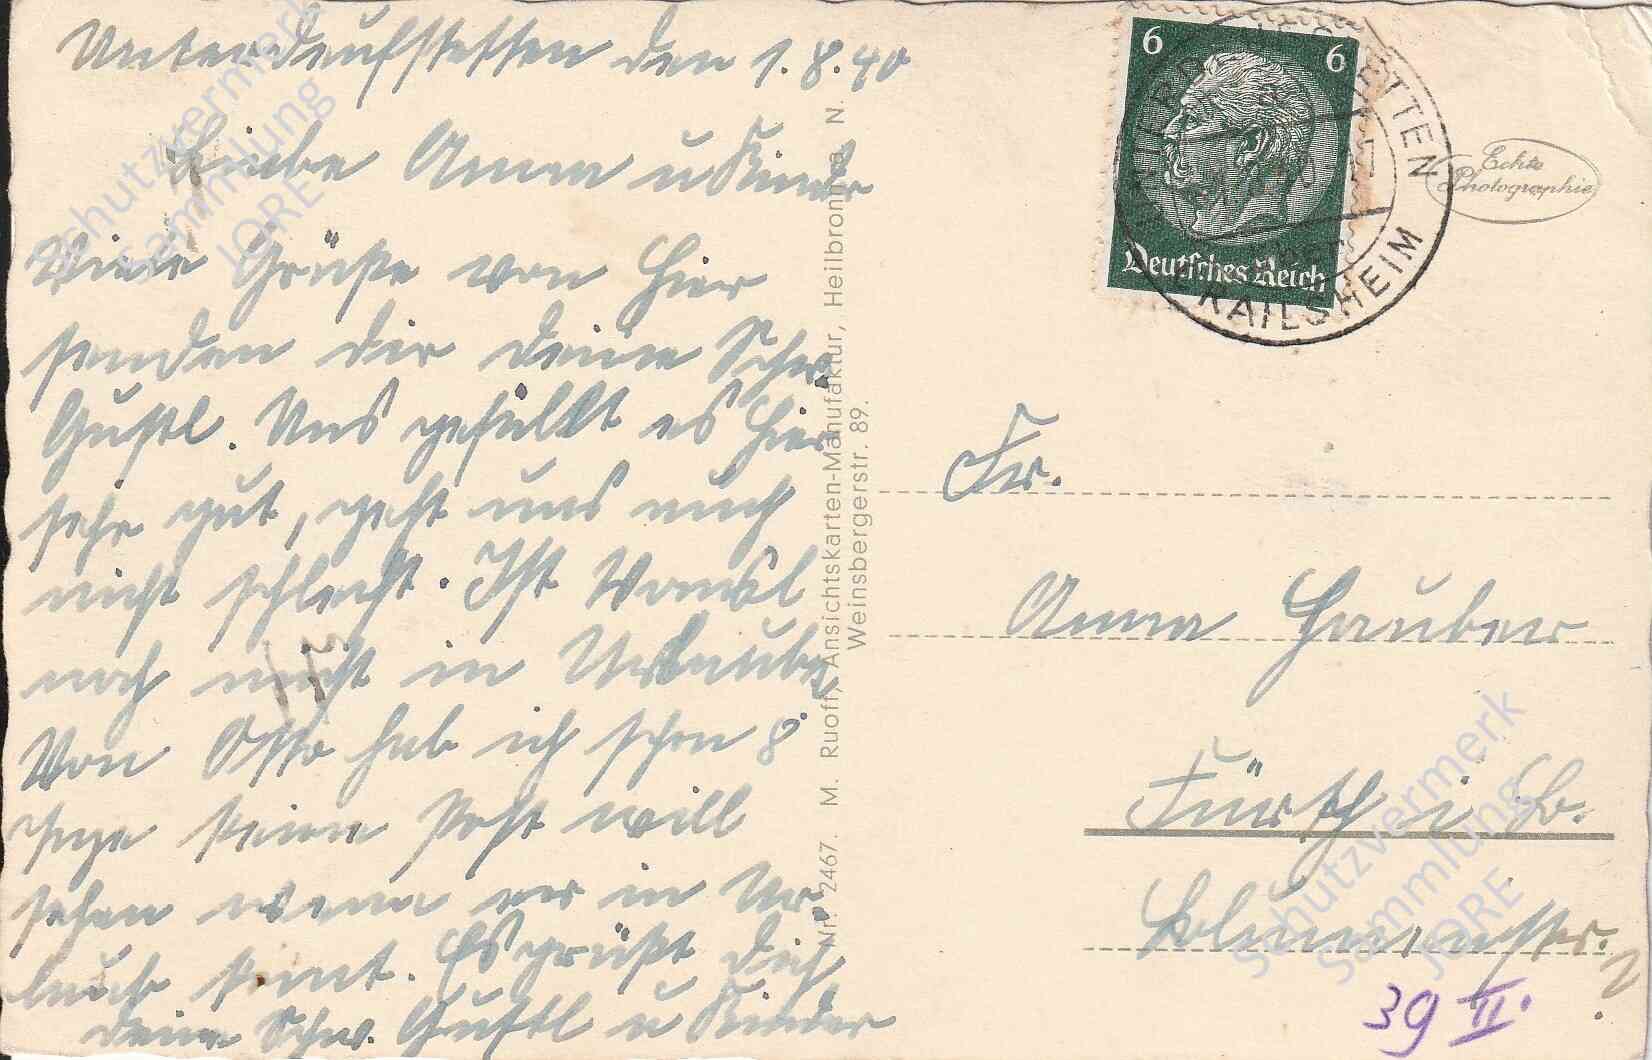 Unterdeufstetten den 1.8.40
Liebe Anna u Kinder
Viele Grüße von hier
senden dir deine Schw.
Gustl. Uns gefällt es hier
sehr gut, geht uns auch
nicht schlecht. Ist
noch nicht in Urlaub
Von Otto hab ich schon 8
Tage keine Post will
sehen wenn er in Ur-
laub kommt. Es grüßt dich
deine Schw. Gustl u Kinder
Nr. 2467. M. Ruoff, Ansichtskarten-Manufaktur, Heilbronn a. N.
Weinsbergerstr. 89.
6 6
Deutsches Reich
CRAILSHEIM
Echte
Photographie
Fr.
Anna Hauber
Fürth i. B.
Blumenstr.
39 II.
Schutzvermerk
Sammlung
JORE
Schutzvermerk
Sammlung
JORE